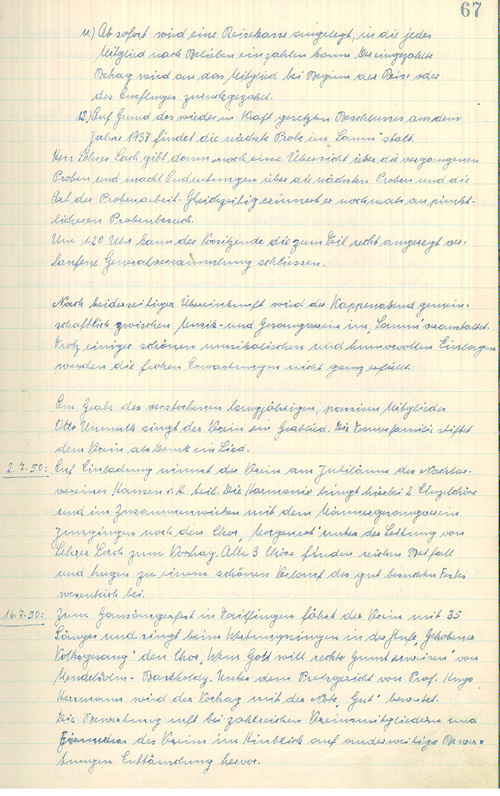 67
11.) Ab sofort wird eine Reisekasse angelegt, in die jedes
Mitglied nach Belieben einzahlen kann. Der eingezahlte
Betrag wird an das Mitglied bei Beginn der Reise oder
des Ausfluges zurückgezahlt.
12.) Auf Grund des wieder in Kraft gesetzten Beschlusses aus dem
Jahre 1937 findet die nächste Probe im "Lamm" statt.
Herr Lehrer Lorch gibt dann noch eine Übersicht über die vergangenen
Proben und macht Andeutungen über die nächsten Proben und die
Art der Probenarbeit. Gleichzeitig erinnert er nochmals an pünkt-
licheren Probenbesuch.
Um 1.20 Uhr kann der Vorsitzende die zum Teil recht angeregt ver-
laufene Generalversammlung schliessen.
Nach beiderseitiger Übereinkunft wird der Kappenabend gemein-
schaftlich zwischen Musik- und Gesangverein im "Lamm" veranstaltet.
Trotz einiger schönen musikalischen und humorvollen Einlagen
werden die frohen Erwartungen nicht ganz erfüllt.
Am Grabe des verstorbenen langjährigen, passiven Mitgliedes
Otto singt der Verein ein Grablied. Die Trauerfamilie stiftet
dem Verein als Dank ein Lied.
2.7.50: Auf Einladung nimmt der Verein am Jubiläum des Nachbar-
vereines Hausen i.K. teil. Die Harmonie bringt hierbei 2 Einzelchöre
und im Zusammenwirken mit dem Männergesangverein
Jungingen noch den Chor "Morgenrot" unter der Leitung von
Lehrer Lorch zum Vortrag. Alle 3 Chöre finden reichen Beifall
und tragen zu einem schönen Verlauf des gut besuchten Festes
wesentlich bei.
16.7.50: Zum Gausängerfest in Tailfingen fährt der Verein mit 35
Sänger und singt beim Wertungssingen in der Stufe "Gehobener
Volksgesang" den Chor "Wem Gott will rechte Gunst erweisen" von
Mendelsohn-Bartholdy. Unter dem Preisgericht von Prof. Hugo
Herrmann wird der Vortrag mit der Note "Gut" bewertet.
Die Bewertung ruft bei zahlreichen Vereinsmitgliedern und
Freunden des Vereins im Hinblick auf anderweitige Bewer-
tungen Enttäuschung hervor.